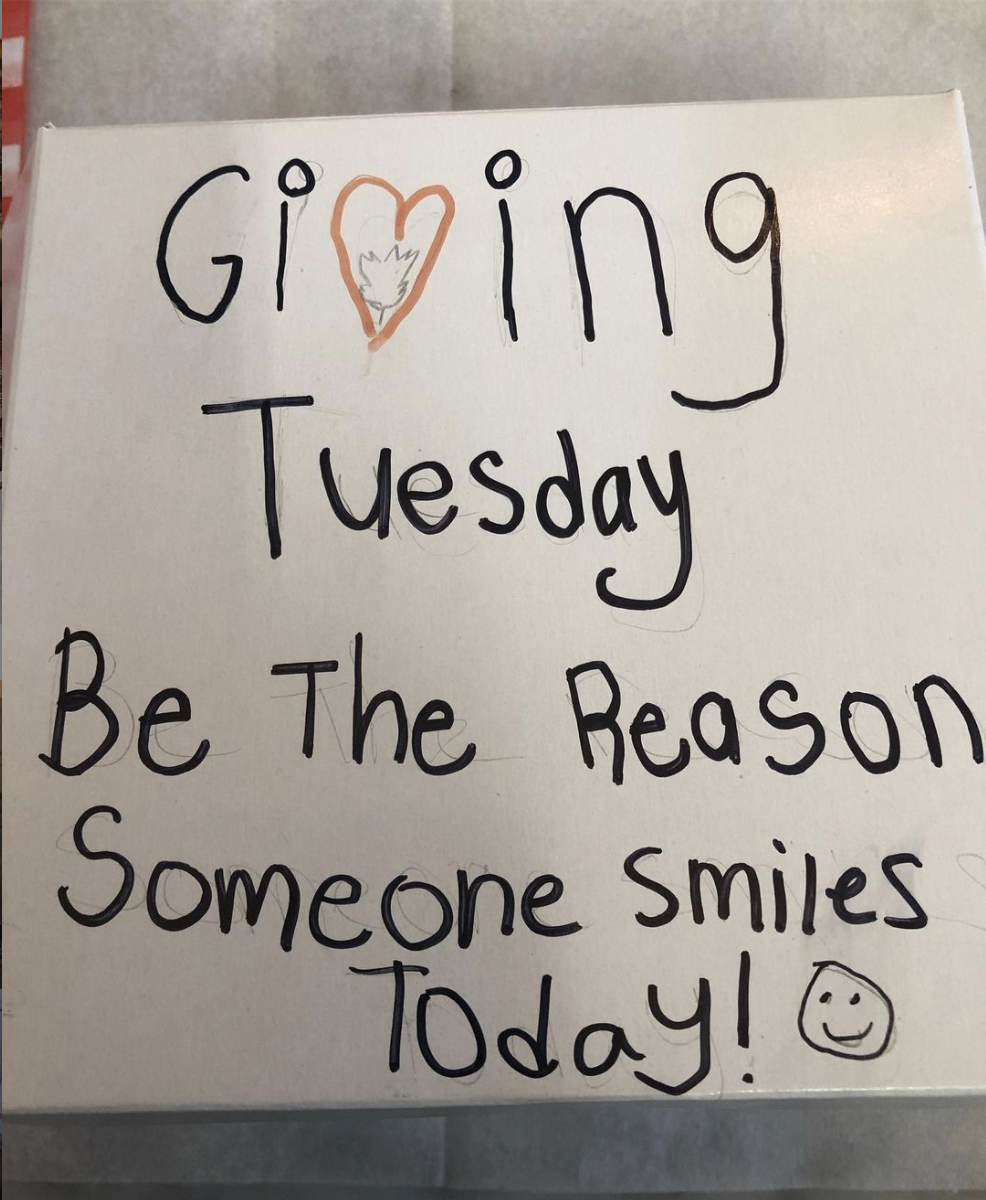 Gi♡ing
Tuesday
Be The Reason
Someone smiles
Today! ☺